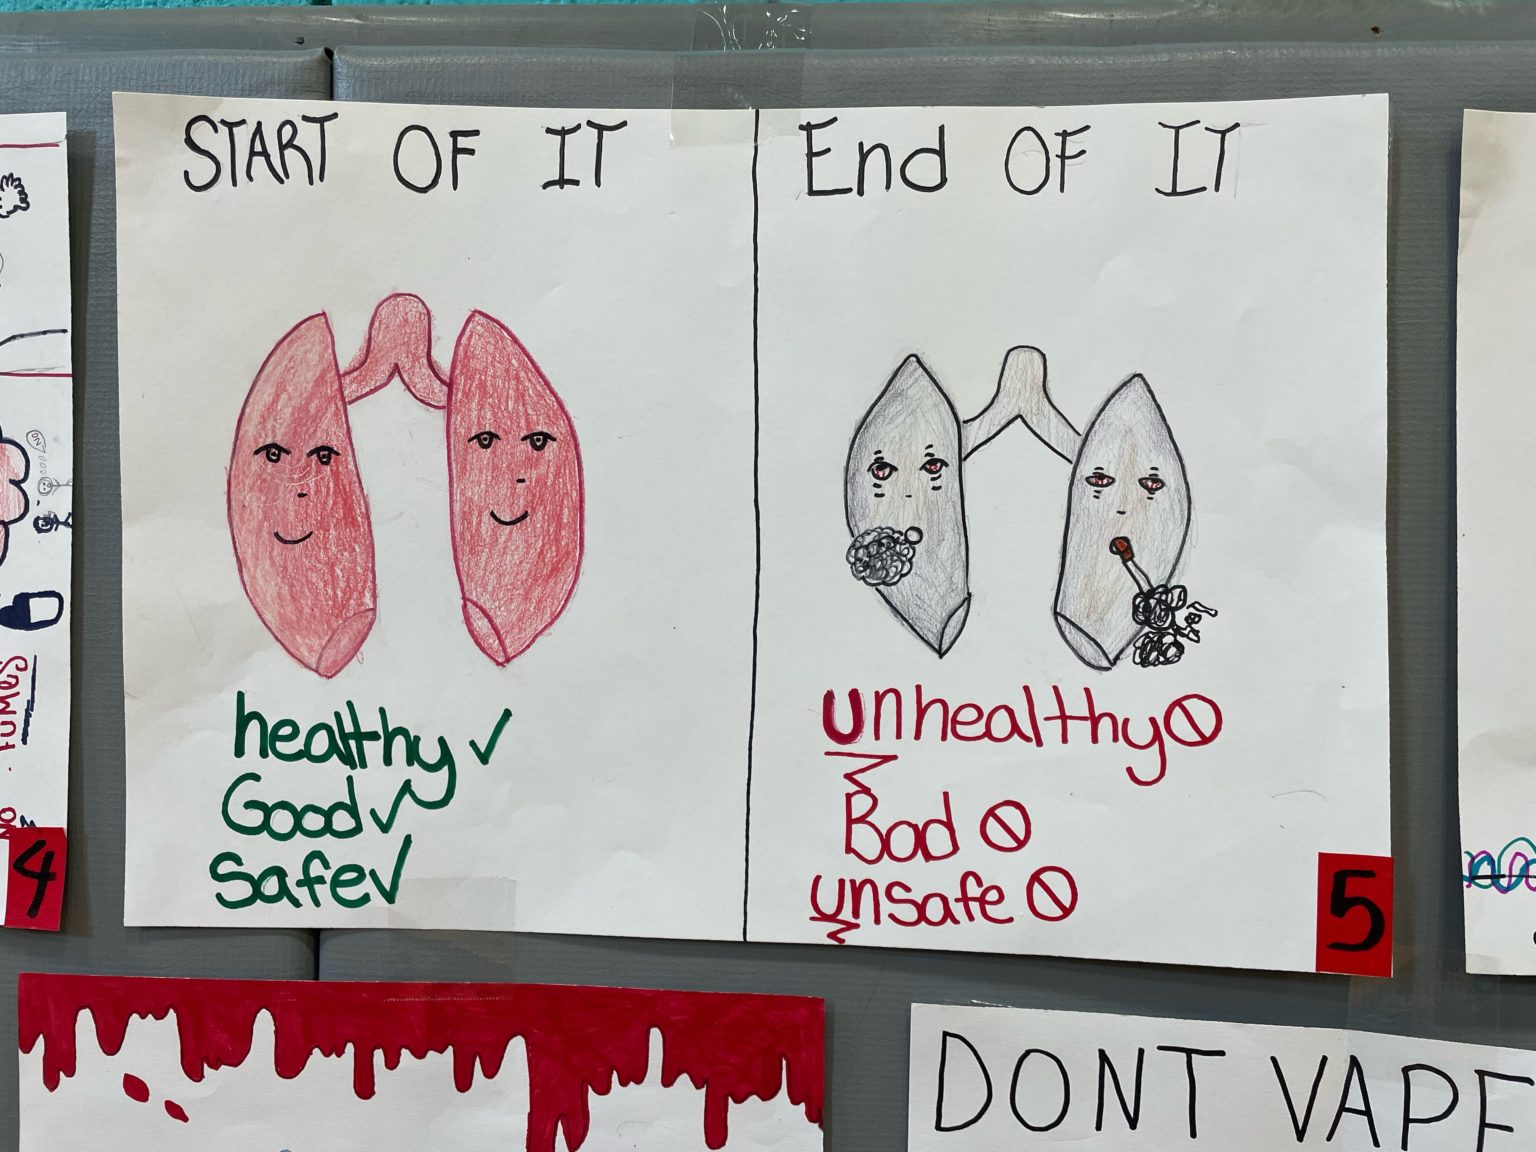 START OF IT
healthy ✓
Good ✓
safe ✓
End OF IT
unhealthy
Bad
unsafe
5
4
FUMES
NO
NO
DONT VAPE